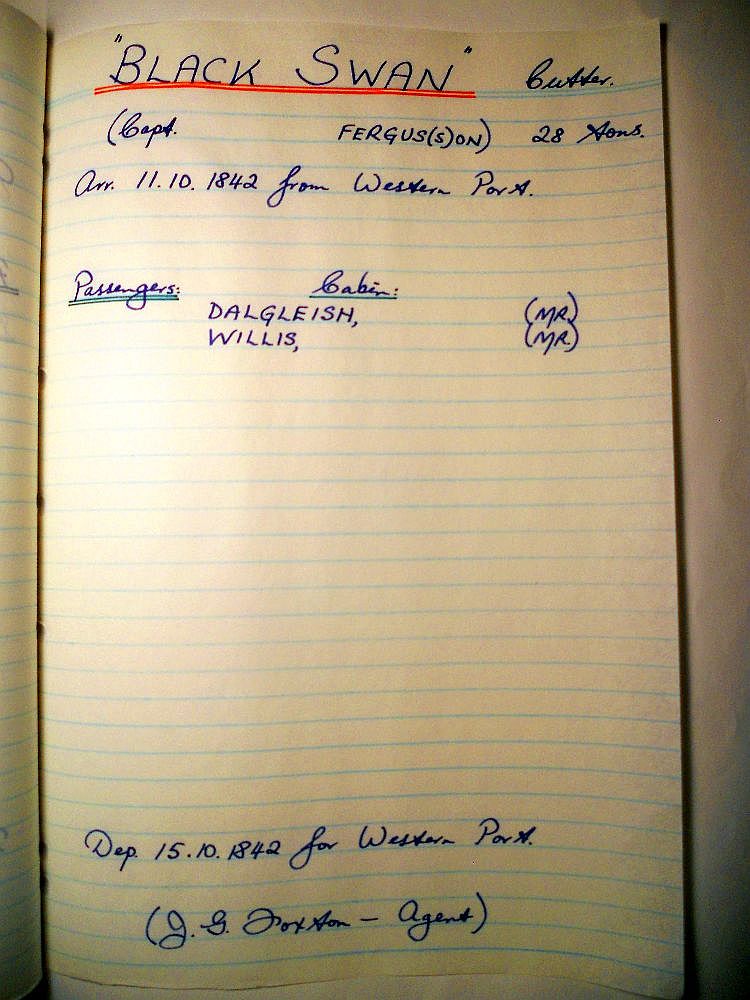 "BLACK SWAN" Cutter.
(Capt. FERGUS(S)ON) 28 Tons.
Arr. 11.10.1842 from Western Port.
Passengers: Cabin:
DALGLEISH, (MR.)
WILLIS, (MR.)
Dep. 15.10.1842 for Western Port.
(J. G. Foxton - Agent)